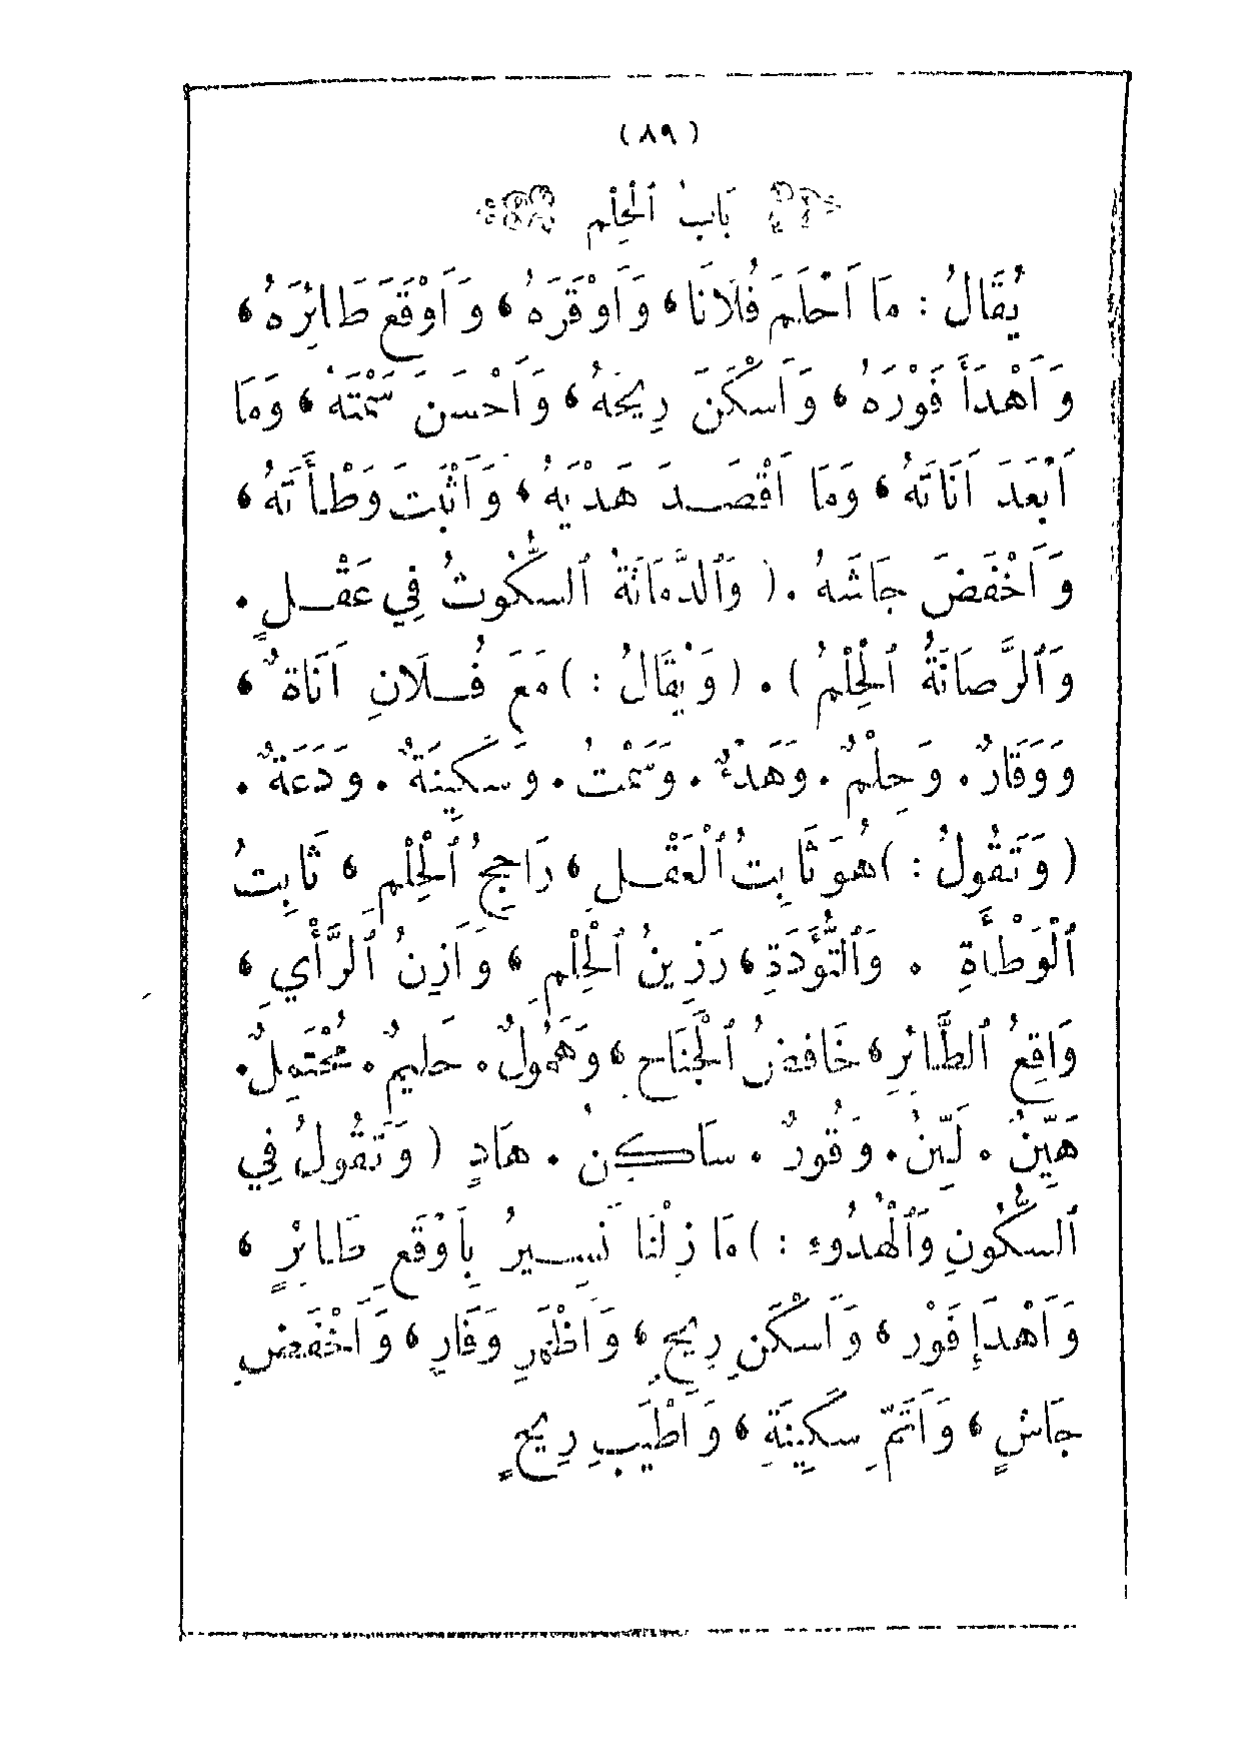 (٨٩)
بَابُ ٱلْحِلْمِ
يُقَالُ : مَا اَحْلَمَ فُلَانًا، وَاَوْقَرَهُ، وَاَوْقَعَ طَائِرَهُ،
وَاَهْدَأَ فَوْرَهُ، وَاَسْكَنَ رِيحَهُ، وَاَحْسَنَ سَمْتَهُ، وَمَا
اَبْعَدَ اَنَاتَهُ، وَمَا اَقْصَدَ هَدْيَهُ، وَاَثْبَتَ وَطْأَتَهُ،
وَاَخْفَضَ جَاشَهُ . ( وَٱلدَّمَاثَةُ ٱلسُّكُوتُ فِي عَقْلٍ .
وَٱلرَّصَانَةُ ٱلْحِلْمُ ) . ( وَيُقَالُ : ) مَعَ فُلَانٍ اَنَاةٌ ،
وَوَقَارٌ . وَحِلْمٌ . وَهَدْءٌ . وَسَمْتٌ . وَسَكِينَةٌ . وَدَعَةٌ .
( وَتَقُولُ : ) هُوَ ثَابِتُ ٱلْعَقْلِ ، رَاجِحُ ٱلْحِلْمِ ، ثَابِتُ
ٱلْوَطْأَةِ . وَٱلتُّؤَدَةِ ، رَزِينُ ٱلْحِلْمِ ، وَازِنُ ٱلرَّأْيِ ،
وَاقِعُ ٱلطَّائِرِ ، خَافِضُ ٱلْجَنَاحِ ، وَهُوَ حَمُولٌ . حَلِيمٌ . مُحْتَمِلٌ .
هَيِّنٌ . لَيِّنٌ . وَقُورٌ . سَاكِنٌ . هَادٍ ( وَتَقُولُ فِي
ٱلسُّكُونِ وَٱلْهُدُوءِ : ) مَا زِلْنَا نَسِيرُ بِاَوْقَعِ طَائِرٍ ،
وَاَهْدَإِ فَوْرٍ ، وَاَسْكَنِ رِيحٍ ، وَاَظْهَرِ وَقَارٍ ، وَاَخْفَضِ
جَاشٍ ، وَاَتَمِّ سَكِينَةٍ ، وَاَطْيَبِ رِيحٍ